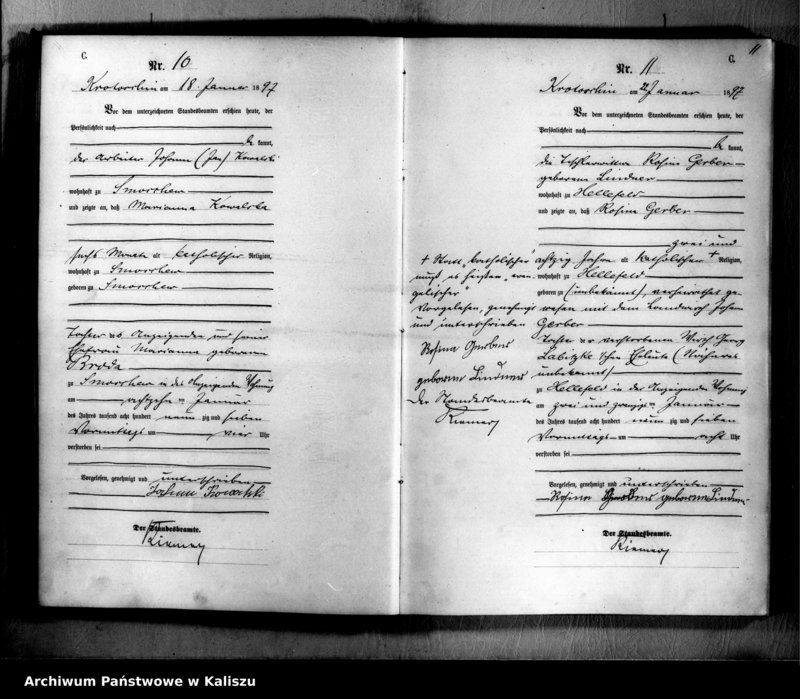 C.
Nr. 10
Krotoschin am 18. Januar 1897
Vor dem unterzeichneten Standesbeamten erschien heute, der
Persönlichkeit nach
be kannt,
der Arbeiter Johann (Jan) Kowalski
wohnhaft zu Smoschew
und zeigte an, daß Marianna Kowalska
sechs Monate alt katholischer Religion,
wohnhaft zu Smoschew
geboren zu Smoschew
Tochter des Anzeigenden und seiner
Ehefrau Marianna geborenen
Broda
zu Smoschew in des Anzeigenden Wohnung
am achtzehn ten Januar
des Jahres tausend acht hundert neun zig und sieben
Vormittags um vier Uhr
verstorben sei
Vorgelesen, genehmigt und unterschrieben
Johann Kowalski
Der Standesbeamte.
11
C.
Nr. 11
Krotoschin am 22 Januar 1897
Vor dem unterzeichneten Standesbeamten erschien heute, der
Persönlichkeit nach
be kannt,
die Rosina Gerber
geborene Lindner
wohnhaft zu Hellefeld
und zeigte an, daß Rosina Gerber
zwei und
achtzig Jahre alt katholischer + Religion,
wohnhaft zu Hellefeld
geboren zu (unbekannt), verheirathet ge-
wesen mit dem Landwirth Johann
Gerber
Tochter der verstorbenen Wirth Georg
Labitzke'schen Eheleute
unbekannt)
zu Hellefeld in der Anzeigenden Wohnung
am zwei und zwanzig ten Januar
des Jahres tausend acht hundert neun zig und sieben
Vormittags um acht Uhr
verstorben sei
Vorgelesen, genehmigt und unterschrieben
Rosina geborene Lindner
Der Standesbeamte.
+ Statt "katholischer"
muß es heißen, "evan-
gelischer"
Vorgelesen, genehmigt
und unterschrieben
Rosina
geborene Lindner
Der Standesbeamte
Archiwum Państwowe w Kaliszu